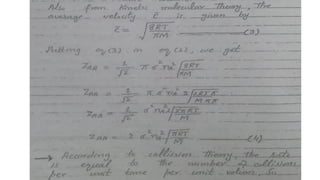 Also from kinetic molecular theory, the
average velocity c̄ is given by
c̄ = √(8RT/πM) —(3)
Putting eq(3) in eq(2), we get
Z_AA = 1/√2 π σ² n_A² √(8RT/πM)
Z_AA = 1/√2 π σ² n_A² 2 √(2RT π/M π π)
Z_AA = 2/√2 σ² n_A² √(2πRT/M)
Z_AA = 2 σ² n_A² √(πRT/M) —(4)
→ According to collision theory, the rate
is equal to the number of collisions
per unit time per unit volume, So